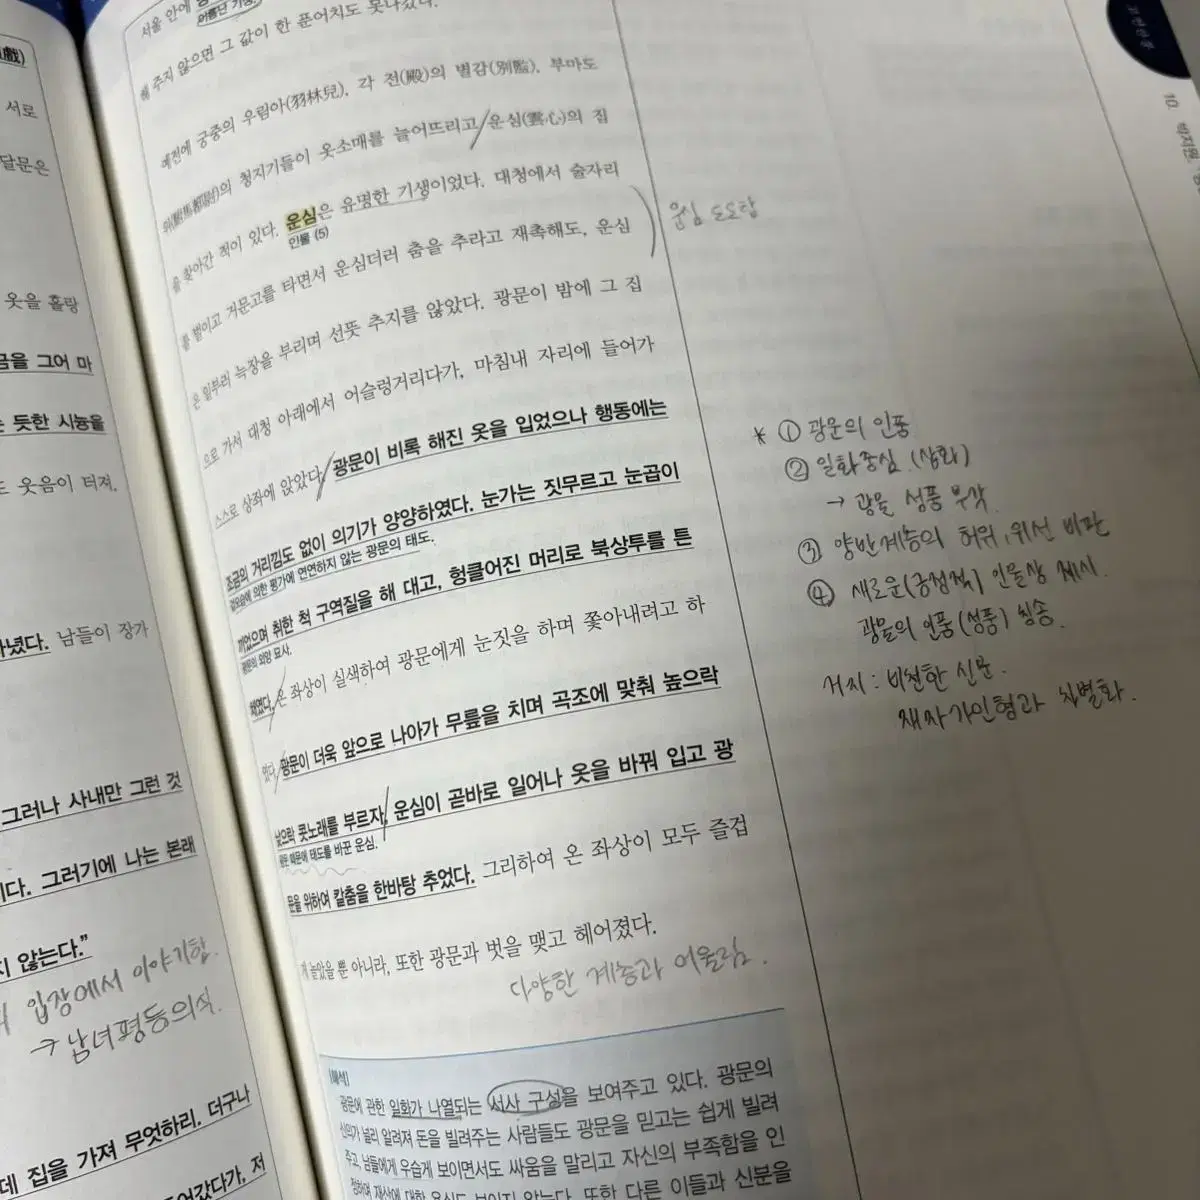 戲)
서로
달문은
옷을 홀랑
금을 그어 마
는 듯한 시늉을
도 웃음이 터져,
나녔다. 남들이 장가
그러나 사내만 그런 것
이다. 그러기에 나는 본래
지 않는다.”
입장에서 이야기함.
→ 남녀평등의식.
을 가져 무엇하리. 더구나
데 집을
들어갔다가, 저
서울 안에
이름난 기생
해 주지 않으면 그 값이 한 푼어치도 못나갔다.
예전에 궁중의 우림아(羽林兒), 각 전(殿)의 별감(別監), 부마도
위(駙馬都尉)의 청지기들이 옷소매를 늘어뜨리고 운심(雲心)의 집
을 찾아간 적이 있다. 운심은 유명한 기생이었다. 대청에서 술자리
인물 (5)
를 벌이고 거문고를 타면서 운심더러 춤을 추라고 재촉해도, 운심
은 일부러 늑장을 부리며 선뜻 추지를 않았다. 광문이 밤에 그 집
으로 가서 대청 아래에서 어슬렁거리다가, 마침내 자리에 들어가
스스로 상좌에 앉았다. 광문이 비록 해진 옷을 입었으나 행동에는
조금의 거리낌도 없이 의기가 양양하였다. 눈가는 짓무르고 눈곱이
겉모습에 의한 평가에 연연하지 않는 광문의 태도.
끼었으며 취한 척 구역질을 해 대고, 헝클어진 머리로 북상투를 튼
광문의 외양 묘사.
채였다. 온 좌상이 실색하여 광문에게 눈짓을 하며 쫓아내려고 하
였다. 광문이 더욱 앞으로 나아가 무릎을 치며 곡조에 맞춰 높으락
낮으락 콧노래를 부르자, 운심이 곧바로 일어나 옷을 바꿔 입고 광
광문 때문에 태도를 바꾼 운심.
문을 위하여 칼춤을 한바탕 추었다. 그리하여 온 좌상이 모두 즐겁
게 놀았을 뿐 아니라, 또한 광문과 벗을 맺고 헤어졌다.
다양한 계층과 어울림.
[해석]
광문에 관한 일화가 나열되는 서사 구성을 보여주고 있다. 광문의
신의가 널리 알려져 돈을 빌려주는 사람들도 광문을 믿고는 쉽게 빌려
주고, 남들에게 우습게 보이면서도 싸움을 말리고 자신의 부족함을 인
정하며 재산에 대한 욕심도 보이지 않는다. 또한 다른 이들과 신분을
운심 도도함
* ① 광문의 인품
② 일화중심 (삽화)
→ 광문 성품 부각
③ 양반계층의 허위, 위선 비판
④ 새로운(긍정적) 인물상 제시.
광문의 인품(성품) 칭송.
거지 : 비천한 신분.
재자가인형과 차별화.
고전산문
10. 박지원,